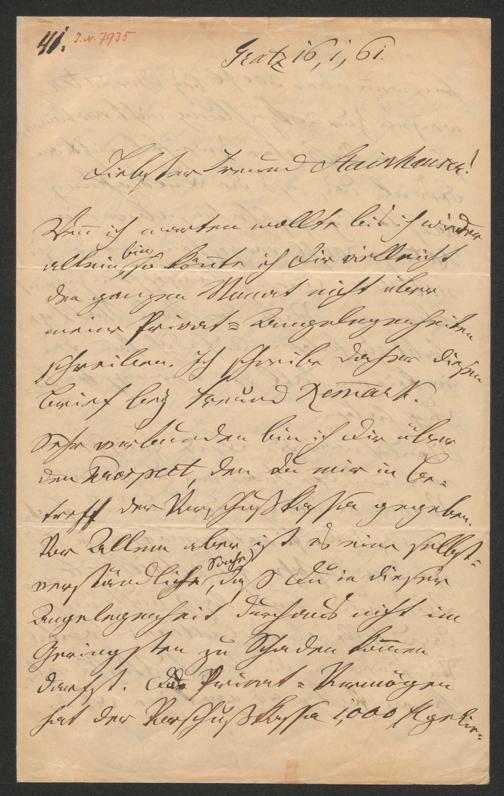 41. I.N. 7935
Gratz 16, 1, 61.
Liebster Freund Stainhauser!
Wenn ich warten wollte bis ich wieder
allein bin, so könnte ich Dir vielleicht
den ganzen Monat nicht über
meine Privat=Angelegenheiten
schreiben. Ich schreibe daher diesen
Brief bey Freund Remark.
Sehr verbunden bin ich Dir über
den Prospect, den Du mir in Be-
treff der Vorschußkassa gegeben.
Vor Allem aber ist es eine selbst=
verständliche Sache, daß Du in dieser
Angelegenheit durchaus nicht im
Geringsten zu Schaden kommen
darfst. Privat=Vermögen
hat der Vorschußkassa 1,000 f gelie=